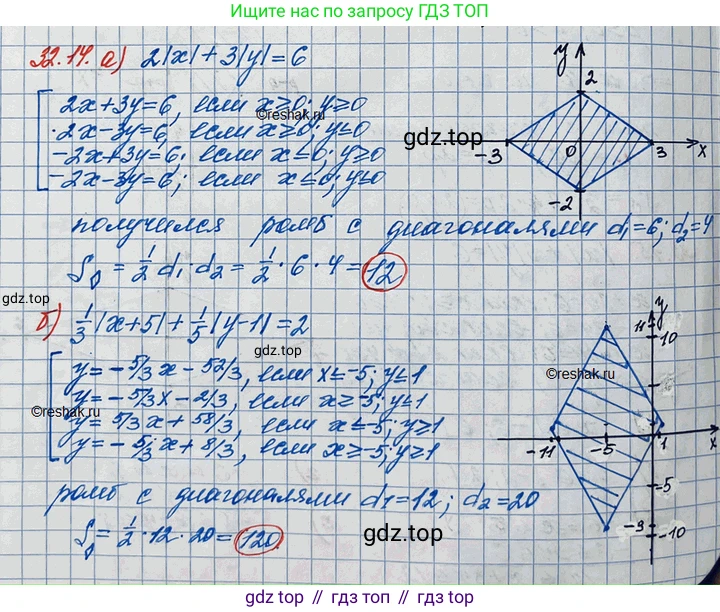 Ищите нас по запросу ГДЗ ТОП
32.14. а) 2|x| + 3|y| = 6
2x+3y=6, если x≥0; y≥0
2x-3y=6, если x≥0; y≤0
-2x+3y=6; если x≤0; y≥0
-2x-3y=6; если x≤0; y≤0
©reshak.ru
gdz.top
y
2
-3
0
3
x
-2
получился ромб с диагоналями d₁=6; d₂=4
S◊ = 1/2 d₁·d₂ = 1/2 · 6 · 4 = 12
gdz.top
б) 1/3|x+5| + 1/5|y-1| = 2
y = - 5/3 x - 52/3, если x≤-5; y≤1
y = - 5/3 x - 2/3, если x≥-5; y≤1
y = 5/3 x + 58/3, если x≤-5; y≥1
y = - 5/3 x + 8/3, если x≥-5; y≥1
©reshak.ru
©reshak.ru
y
11
10
-11
-5
1
x
-5
-9
-10
ромб с диагоналями d₁=12; d₂=20
S◊ = 1/2 · 12 · 20 = 120
gdz.top
гдз топ // гдз топ // гдз топ